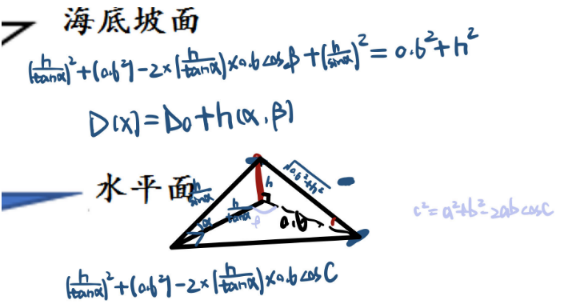 海底坡面
(h/tanα)²+(0.6²)-2×(h/tanα)×0.6 cos β+(h/sinα)²=0.6²+h²
D(x)=D₀+h(α,β)
水平面
h/sinα
h
√0.6²+h²
h/tanα
α
β
0.6
c²=a²+b²-2ab cosC
(h/tanα)²+(0.6²)-2×(h/tanα)×0.6 cos C